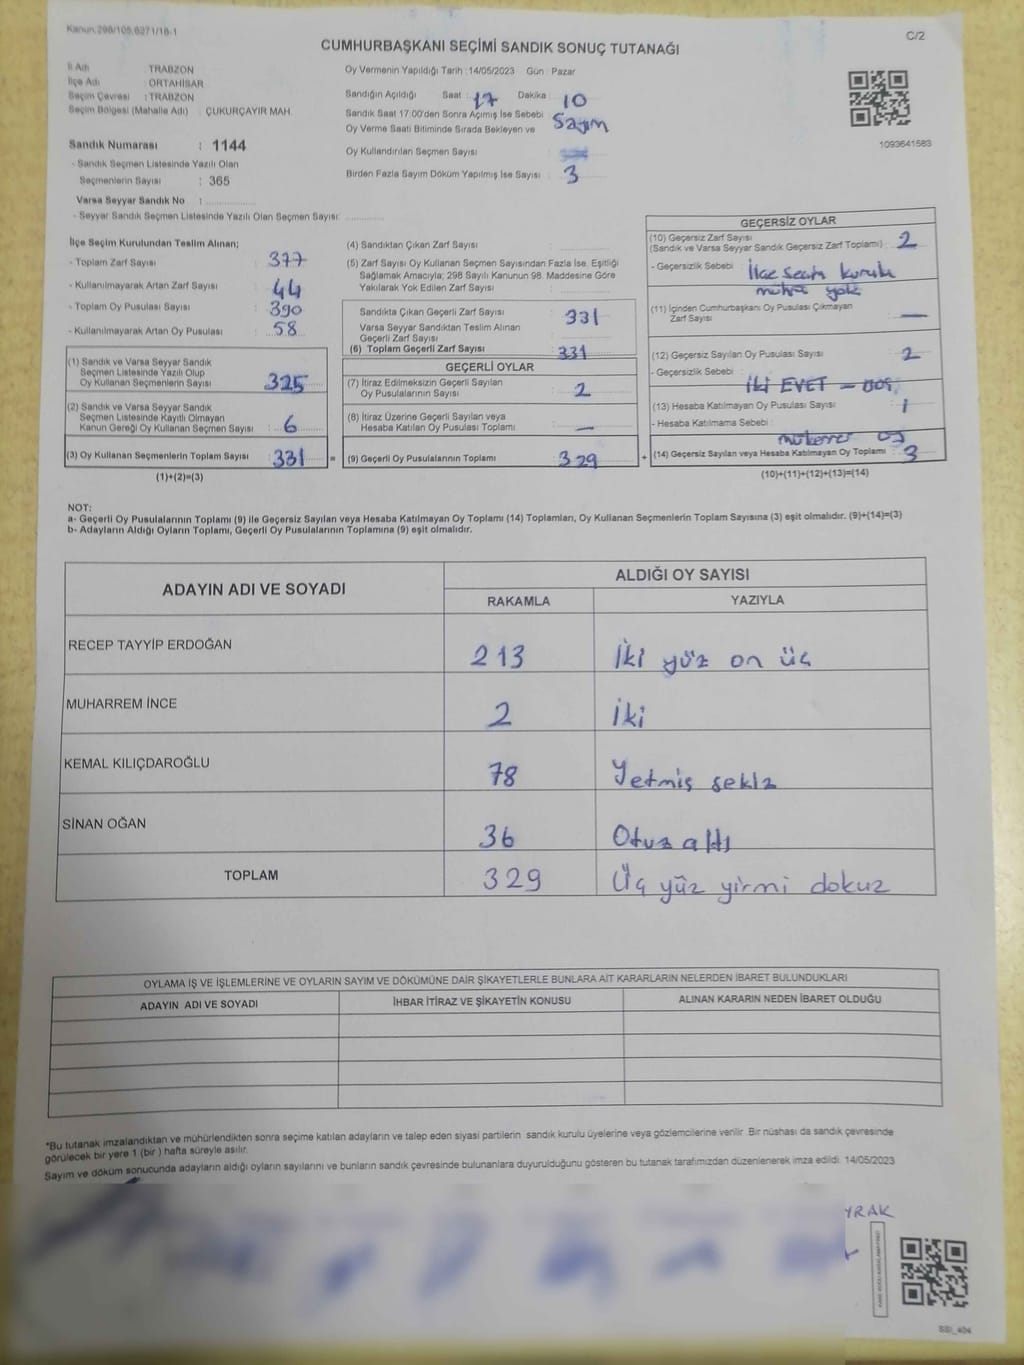 Kanun.298/105,6271/18-1
C/2
CUMHURBAŞKANI SEÇİMİ SANDIK SONUÇ TUTANAĞI
İl Adı : TRABZON
İlçe Adı : ORTAHİSAR
Seçim Çevresi : TRABZON
Seçim Bölgesi (Mahalle Adı) : ÇUKURÇAYIR MAH.
Sandık Numarası : 1144
- Sandık Seçmen Listesinde Yazılı Olan
Seçmenlerin Sayısı : 365
Varsa Seyyar Sandık No :
- Seyyar Sandık Seçmen Listesinde Yazılı Olan Seçmen Sayısı:
Oy Vermenin Yapıldığı Tarih :14/05/2023 Gün : Pazar
Sandığın Açıldığı Saat : 17 Dakika : 10
Sandık Saat 17:00'den Sonra Açımış İse Sebebi : Sayım
Oy Verme Saati Bitiminde Sırada Bekleyen ve
Oy Kullandırılan Seçmen Sayısı :
Birden Fazla Sayım Döküm Yapılmış İse Sayısı : 3
1093641583
İlçe Seçim Kurulundan Teslim Alınan;
- Toplam Zarf Sayısı : 377
- Kullanılmayarak Artan Zarf Sayısı : 44
- Toplam Oy Pusulası Sayısı : 390
- Kullanılmayarak Artan Oy Pusulası : 58
(1) Sandık ve Varsa Seyyar Sandık
Seçmen Listesinde Yazılı Olup
Oy Kullanan Seçmenlerin Sayısı : 325
(2) Sandık ve Varsa Seyyar Sandık
Seçmen Listesinde Kayıtlı Olmayan
Kanun Gereği Oy Kullanan Seçmen Sayısı : 6
(3) Oy Kullanan Seçmenlerin Toplam Sayısı : 331 =
(1)+(2)=(3)
(4) Sandıktan Çıkan Zarf Sayısı :
(5) Zarf Sayısı Oy Kullanan Seçmen Sayısından Fazla İse, Eşitliği
Sağlamak Amacıyla; 298 Sayılı Kanunun 98. Maddesine Göre
Yakılarak Yok Edilen Zarf Sayısı :
Sandıkta Çıkan Geçerli Zarf Sayısı : 331
Varsa Seyyar Sandıktan Teslim Alınan
Geçerli Zarf Sayısı :
(6) Toplam Geçerli Zarf Sayısı : 331
GEÇERLİ OYLAR
(7) İtiraz Edilmeksizin Geçerli Sayılan
Oy Pusulalarının Sayısı : 2
(8) İtiraz Üzerine Geçerli Sayılan veya
Hesaba Katılan Oy Pusulası Toplamı : —
(9) Geçerli Oy Pusulalarının Toplamı : 329 +
GEÇERSİZ OYLAR
(10) Geçersiz Zarf Sayısı
(Sandık ve Varsa Seyyar Sandık Geçersiz Zarf Toplamı) : 2
- Geçersizlik Sebebi : İlçe Seçim Kurulu
mührü yok
(11) İçinden Cumhurbaşkanı Oy Pusulası Çıkmayan
Zarf Sayısı : —
(12) Geçersiz Sayılan Oy Pusulası Sayısı : 2
- Geçersizlik Sebebi : İKİ EVET —
(13) Hesaba Katılmayan Oy Pusulası Sayısı : 1
- Hesaba Katılmama Sebebi :
mükerrer oy
(14) Geçersiz Sayılan veya Hesaba Katılmayan Oy Toplamı : 3
(10)+(11)+(12)+(13)=(14)
NOT:
a- Geçerli Oy Pusulalarının Toplamı (9) ile Geçersiz Sayılan veya Hesaba Katılmayan Oy Toplamı (14) Toplamları, Oy Kullanan Seçmenlerin Toplam Sayısına (3) eşit olmalıdır. (9)+(14)=(3)
b- Adayların Aldığı Oyların Toplamı, Geçerli Oy Pusulalarının Toplamına (9) eşit olmalıdır.
ADAYIN ADI VE SOYADI
ALDIĞI OY SAYISI
RAKAMLA YAZIYLA
RECEP TAYYİP ERDOĞAN 213 İki yüz on üç
MUHARREM İNCE 2 İki
KEMAL KILIÇDAROĞLU 78 Yetmiş sekiz
SİNAN OĞAN 36 Otuz altı
TOPLAM 329 Üç yüz yirmi dokuz
OYLAMA İŞ VE İŞLEMLERİNE VE OYLARIN SAYIM VE DÖKÜMÜNE DAİR ŞİKAYETLERLE BUNLARA AİT KARARLARIN NELERDEN İBARET BULUNDUKLARI
ADAYIN ADI VE SOYADI İHBAR İTİRAZ VE ŞİKAYETİN KONUSU ALINAN KARARIN NEDEN İBARET OLDUĞU
*Bu tutanak imzalandıktan ve mühürlendikten sonra seçime katılan adayların ve talep eden siyasi partilerin sandık kurulu üyelerine veya gözlemcilerine verilir. Bir nüshası da sandık çevresinde
görülecek bir yere 1 (bir ) hafta süreyle asılır.
Sayım ve döküm sonucunda adayların aldığı oyların sayılarını ve bunların sandık çevresinde bulunanlara duyurulduğunu gösteren bu tutanak tarafımızdan düzenlenerek imza edildi. 14/05/2023
YRAK
SSI_404